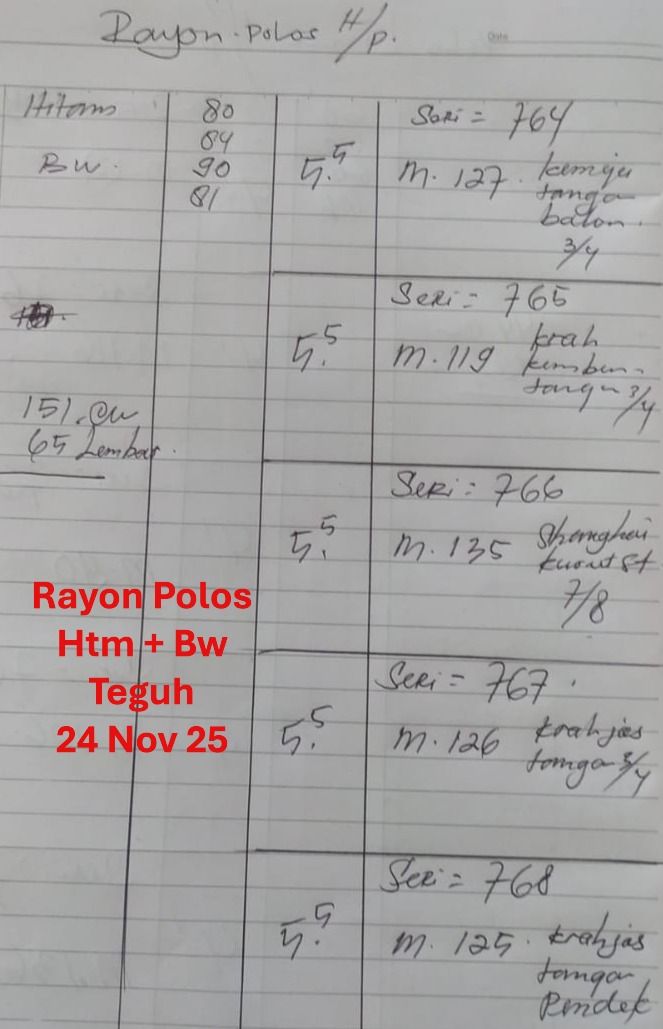 Rayon polos H/p.
Hitam 80
84
BW. 90
81
151. cw
65 Lembar.
5.5
Seri = 764
M. 127. kemeja
tangan
balon.
3/4
5.5
Seri = 765
M. 119 krah
kemben
tangan 3/4
5.5
Seri = 766
M. 135 Shanghai
kuout St
7/8
5.5
Seri = 767.
M. 126 krah jas
tangan 3/4
5.5
Seri = 768
M. 125. krah jas
tangan
Pendek
Rayon Polos
Htm + Bw
Teguh
24 Nov 25